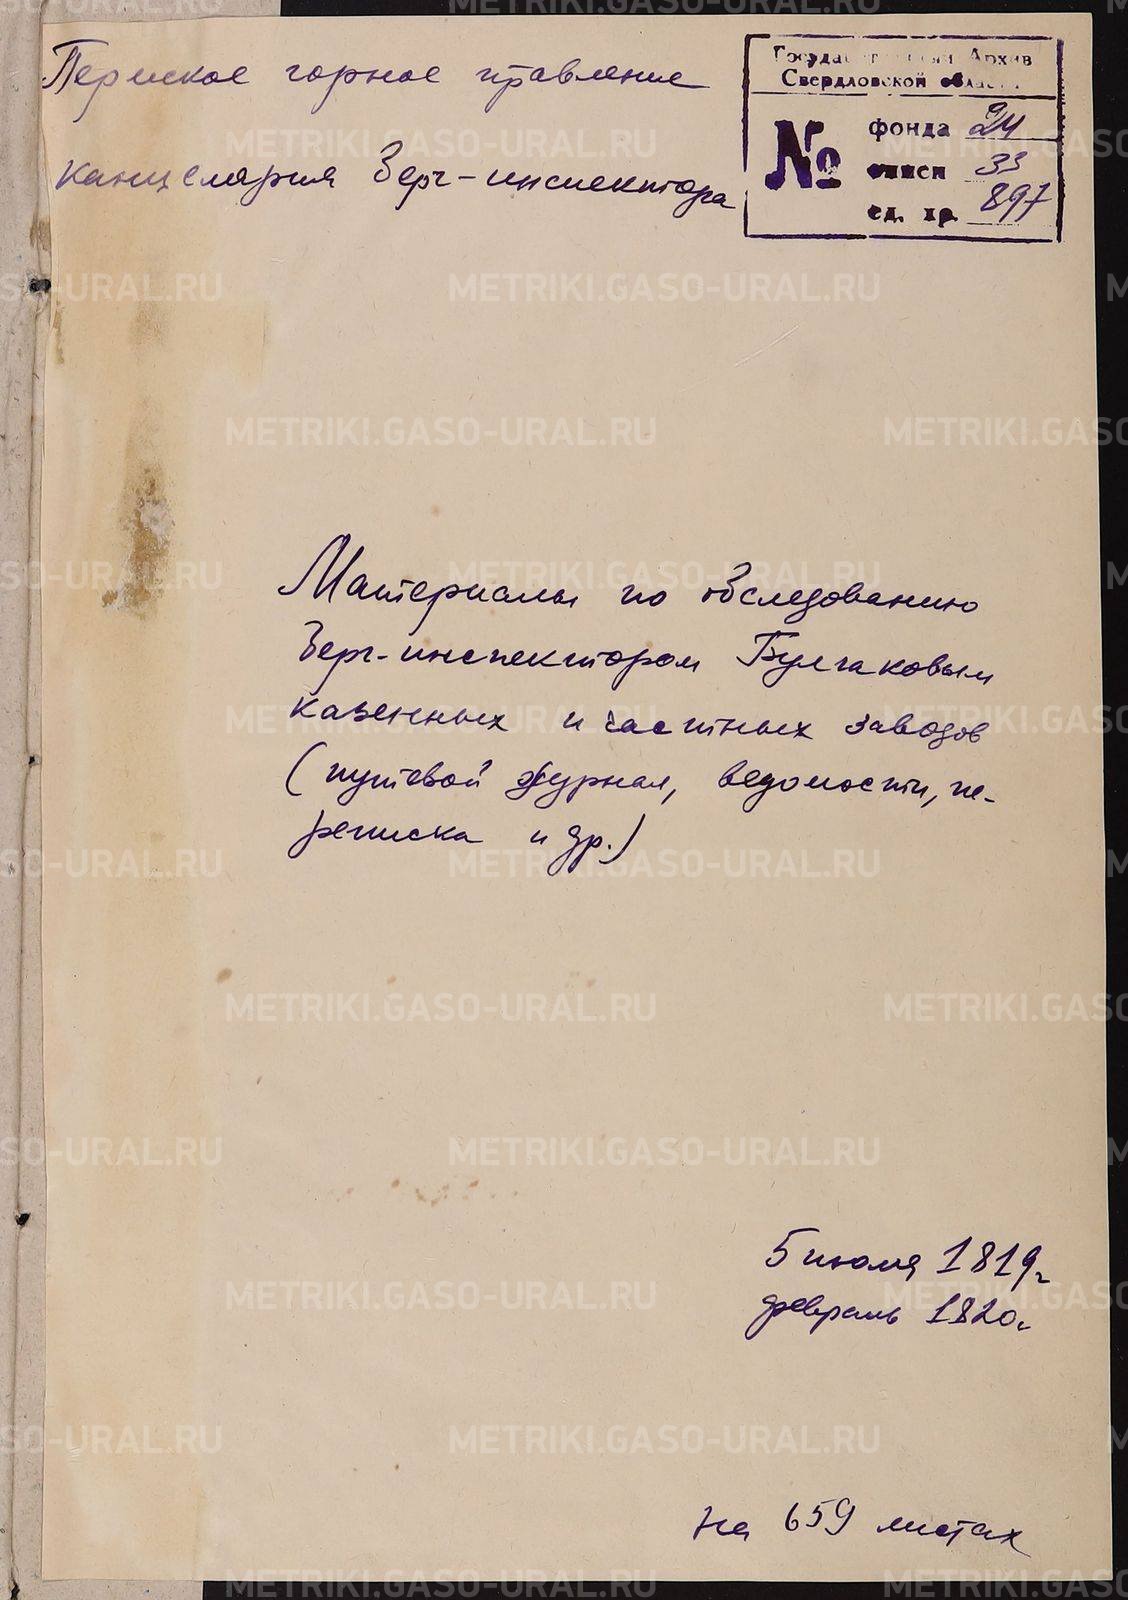 Пермское горное правление
канцелярия Берг-инспектора
Государственный Архив
Свердловской области
№
фонда 24
описи 33
ед. хр. 897
Материалы по обследованию
Берг-инспектором Булгаковым
казенных и частных заводов
(путевой журнал, ведомости, пе-
реписка и др.)
5 июля 1819 г.
февраль 1820 г.
на 659 листах
METRIKI.GASO-URAL.RU